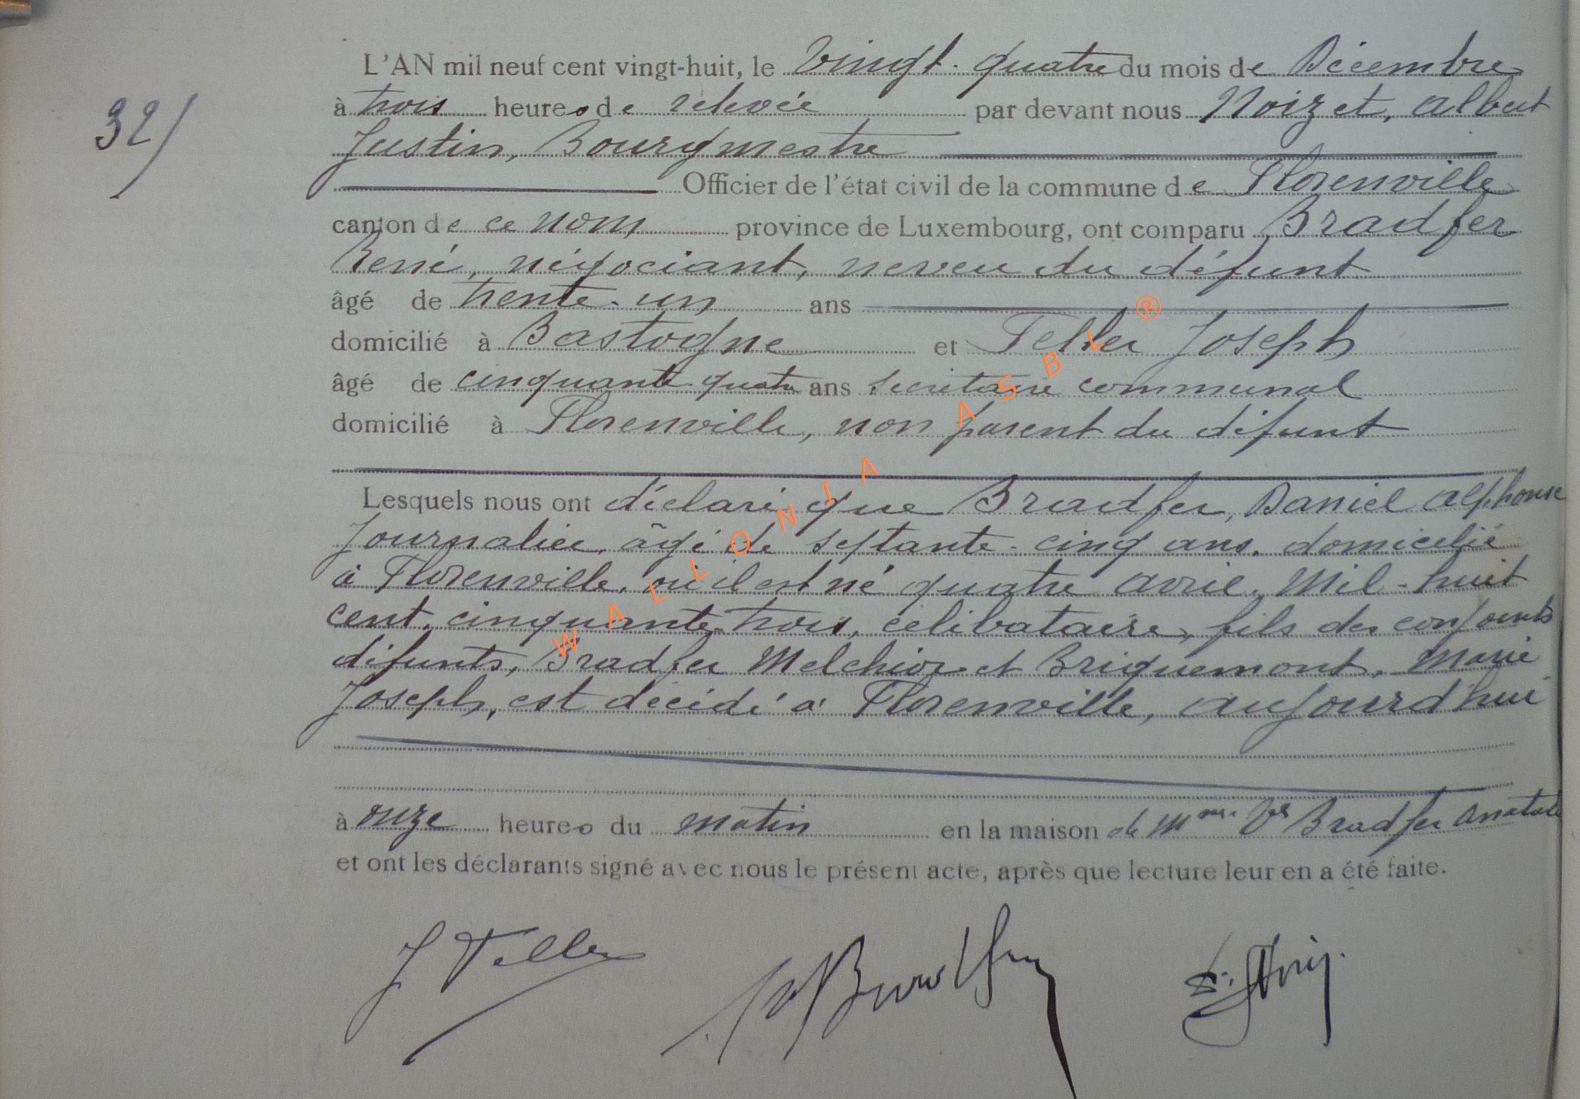 L'AN mil neuf cent vingt-huit, le Vingt-quatre du mois de Décembre
32/
à trois heures de relevée par devant nous Noizet, Albert
Justin, Bourgmestre
Officier de l'état civil de la commune de Florenville
canton de ce nom province de Luxembourg, ont comparu Bradfer
René, négociant, neveu du défunt
âgé de trente-un ans
domicilié à Bastogne et Teller Joseph
âgé de cinquante quatre ans secrétaire communal
domicilié à Florenville, non parent du défunt
Lesquels nous ont déclaré que Bradfer, Daniel Alphonse
Journalier, âgé de septante-cinq ans, domicilié
à Florenville, où il est né quatre avril, Mil-huit
cent, cinquante trois, célibataire, fils des conjoints
défunts, Bradfer Melchior et Briquemont, Marie
Joseph, est décédé à Florenville, aujourd'hui
à onze heures du matin en la maison de Mme Vve Bradfer Anatole
et ont les déclarants signé avec nous le présent acte, après que lecture leur en a été faite.
J Teller
WALLONIA ASBL ®